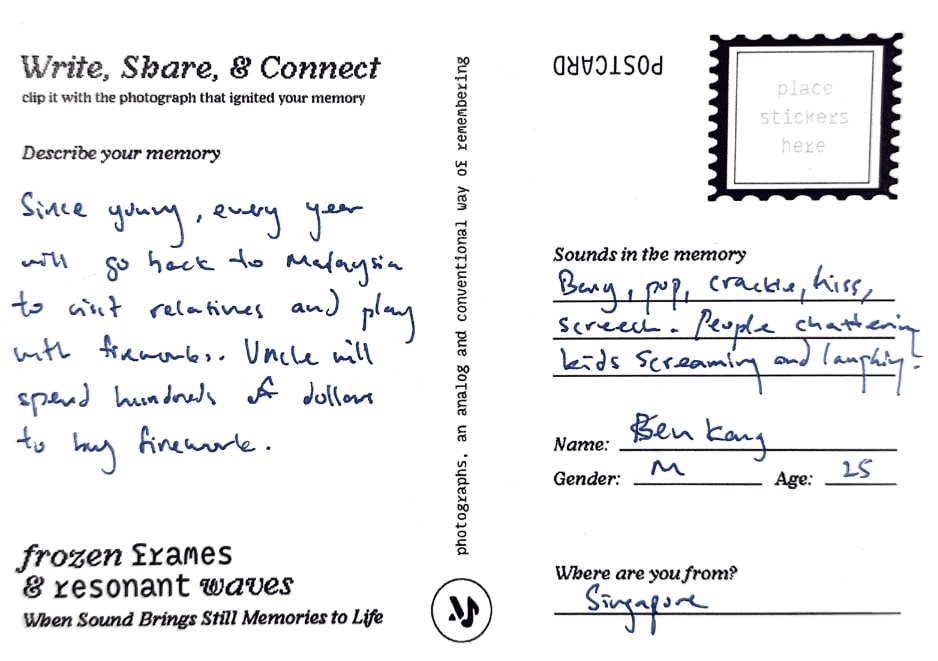 Write, Share, & Connect
clip it with the photograph that ignited your memory
Describe your memory
Since young, every year
will go back to Malaysia
to visit relatives and play
with fireworks. Uncle will
spend hundreds of dollars
to buy firework.
frozen frames
& resonant waves
When Sound Brings Still Memories to Life
photographs, an analog and conventional way of remembering
POSTCARD
place
stickers
here
Sounds in the memory
Bang, pop, crackle, hiss,
screech. People chattering
kids screaming and laughing.
Name: Ben Kang
Gender: M Age: 25
Where are you from?
Singapore